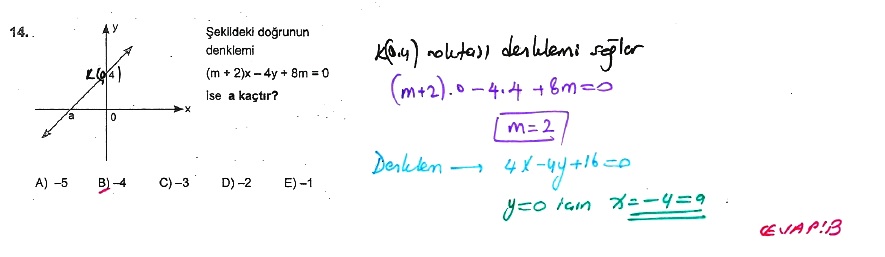 14.
y
K(0,4)
x
a
0
Şekildeki doğrunun
denklemi
(m + 2)x – 4y + 8m = 0
ise a kaçtır?
A) –5 B) –4 C) –3 D) –2 E) –1
K(0,4) noktası denklemi sağlar
(m+2).0 – 4.4 + 8m = 0
m = 2
Denklem → 4x – 4y + 16 = 0
y = 0 için x = –4 = a
CEVAP:B